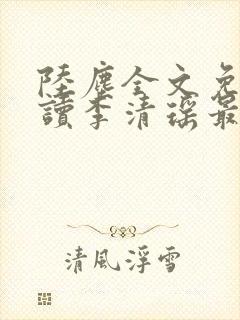 陸塵全文免
讀李清瑤最
清風浮雪